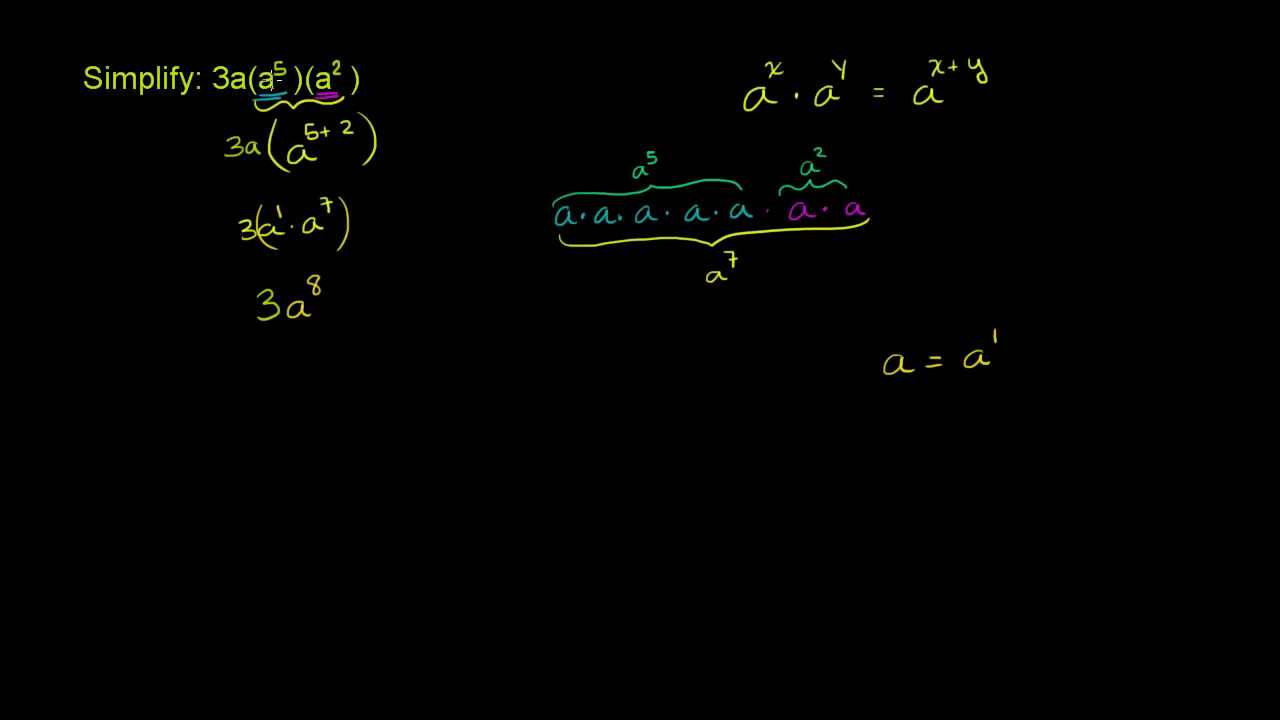 Simplify: 3a(a⁵)(a²)
3a(a⁵⁺²)
3(a¹·a⁷)
3a⁸
aˣ · aʸ = aˣ⁺ʸ
a⁵ a²
a·a·a·a·a·a·a
a⁷
a = a¹